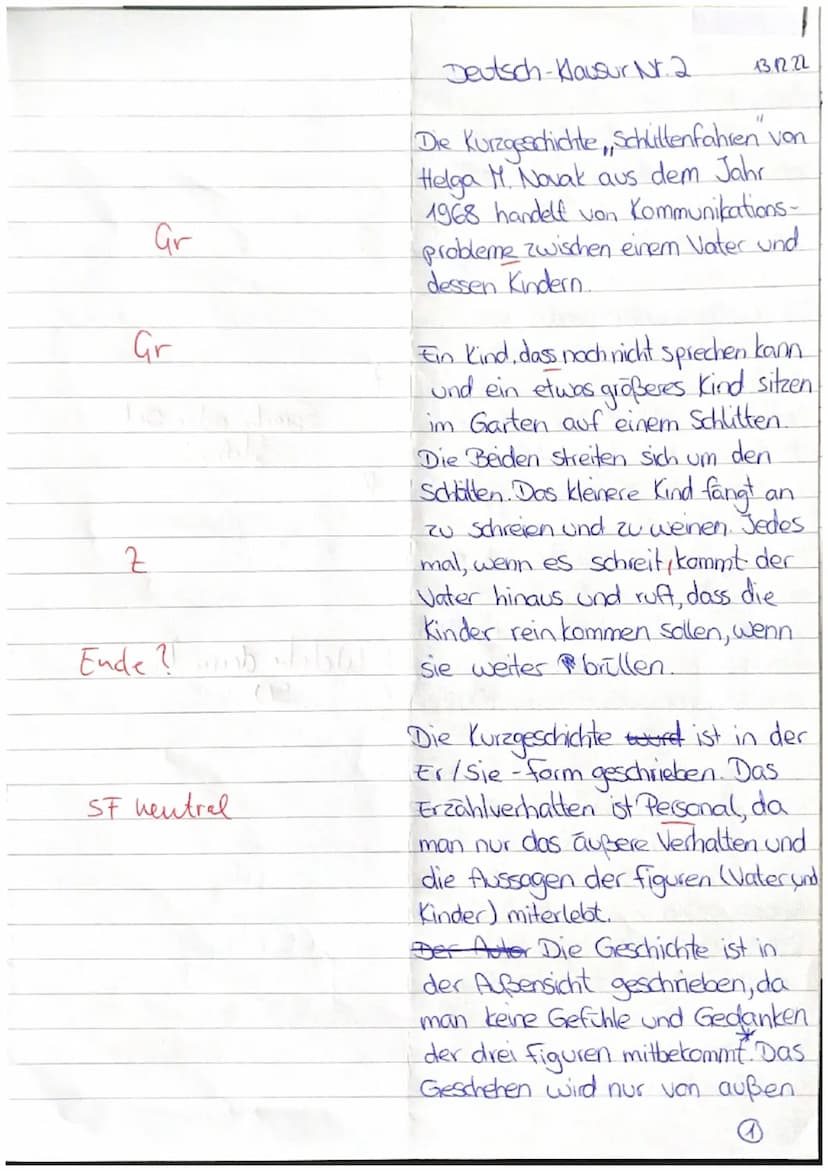 Deutsch-Klausur Nr. 2 13.12.22
Die Kurzgeschichte „Schlittenfahren" von
Helga M. Novak aus dem Jahr
1968 handelt von Kommunikations-
Gr probleme zwischen einem Vater und
dessen Kindern.
Gr Ein Kind, dass noch nicht sprechen kann
und ein etwas größeres Kind sitzen
im Garten auf einem Schlitten.
Die Beiden streiten sich um den
Schlitten. Das kleinere Kind fängt an
zu schreien und zu weinen. Jedes
Z mal, wenn es schreit, kommt der
Vater hinaus und ruft, dass die
Kinder rein kommen sollen, wenn
Ende? sie weiter brüllen.
Die Kurzgeschichte wurd ist in der
Er/Sie-Form geschrieben. Das
SF neutral Erzählverhalten ist Personal, da
man nur das äußere Verhalten und
die Aussagen der Figuren (Vater und
Kinder) miterlebt.
Der Autor Die Geschichte ist in
der Außensicht geschrieben, da
man keine Gefühle und Gedanken
der drei Figuren mitbekommt.* Das
Geschehen wird nur von außen
1